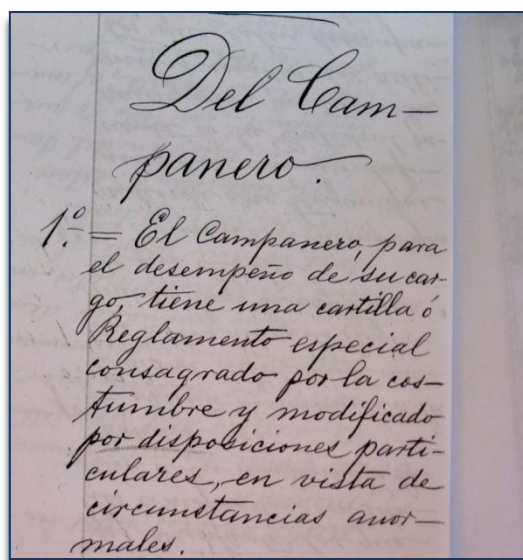 Del Cam-
panero.
1º.= El Campanero, para
el desempeño de su car-
go, tiene una cartilla ó
Reglamento especial
consagrado por la cos-
tumbre y modificado
por disposiciones parti-
culares, en vista de
circunstancias anor-
males.